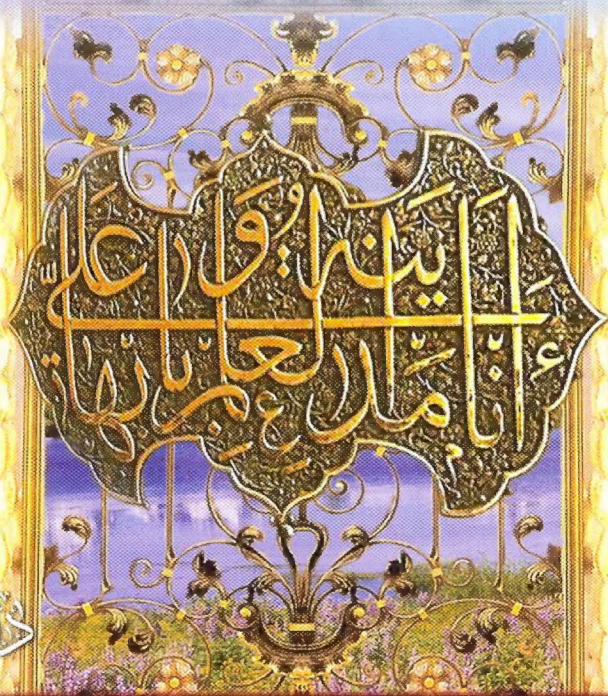 أَنَا مَدِينَةُ الْعِلْمِ وَعَلِيٌّ بَابُهَا